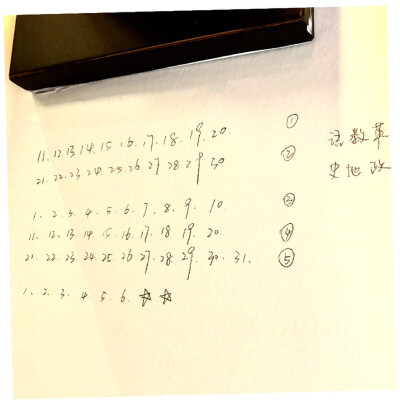 11. 12. 13. 14. 15. 16. 17. 18. 19. 20. ① 语数英
21. 22. 23. 24. 25. 26. 27 28 29 30 ② 史地政
1. 2. 3. 4. 5. 6. 7. 8. 9. 10. ③
11. 12. 13. 14. 15. 16. 17. 18. 19. 20. ④
21. 22. 23. 24. 25. 26. 27. 28. 29. 30. 31. ⑤
1. 2. 3. 4. 5. 6. ☆ ☆